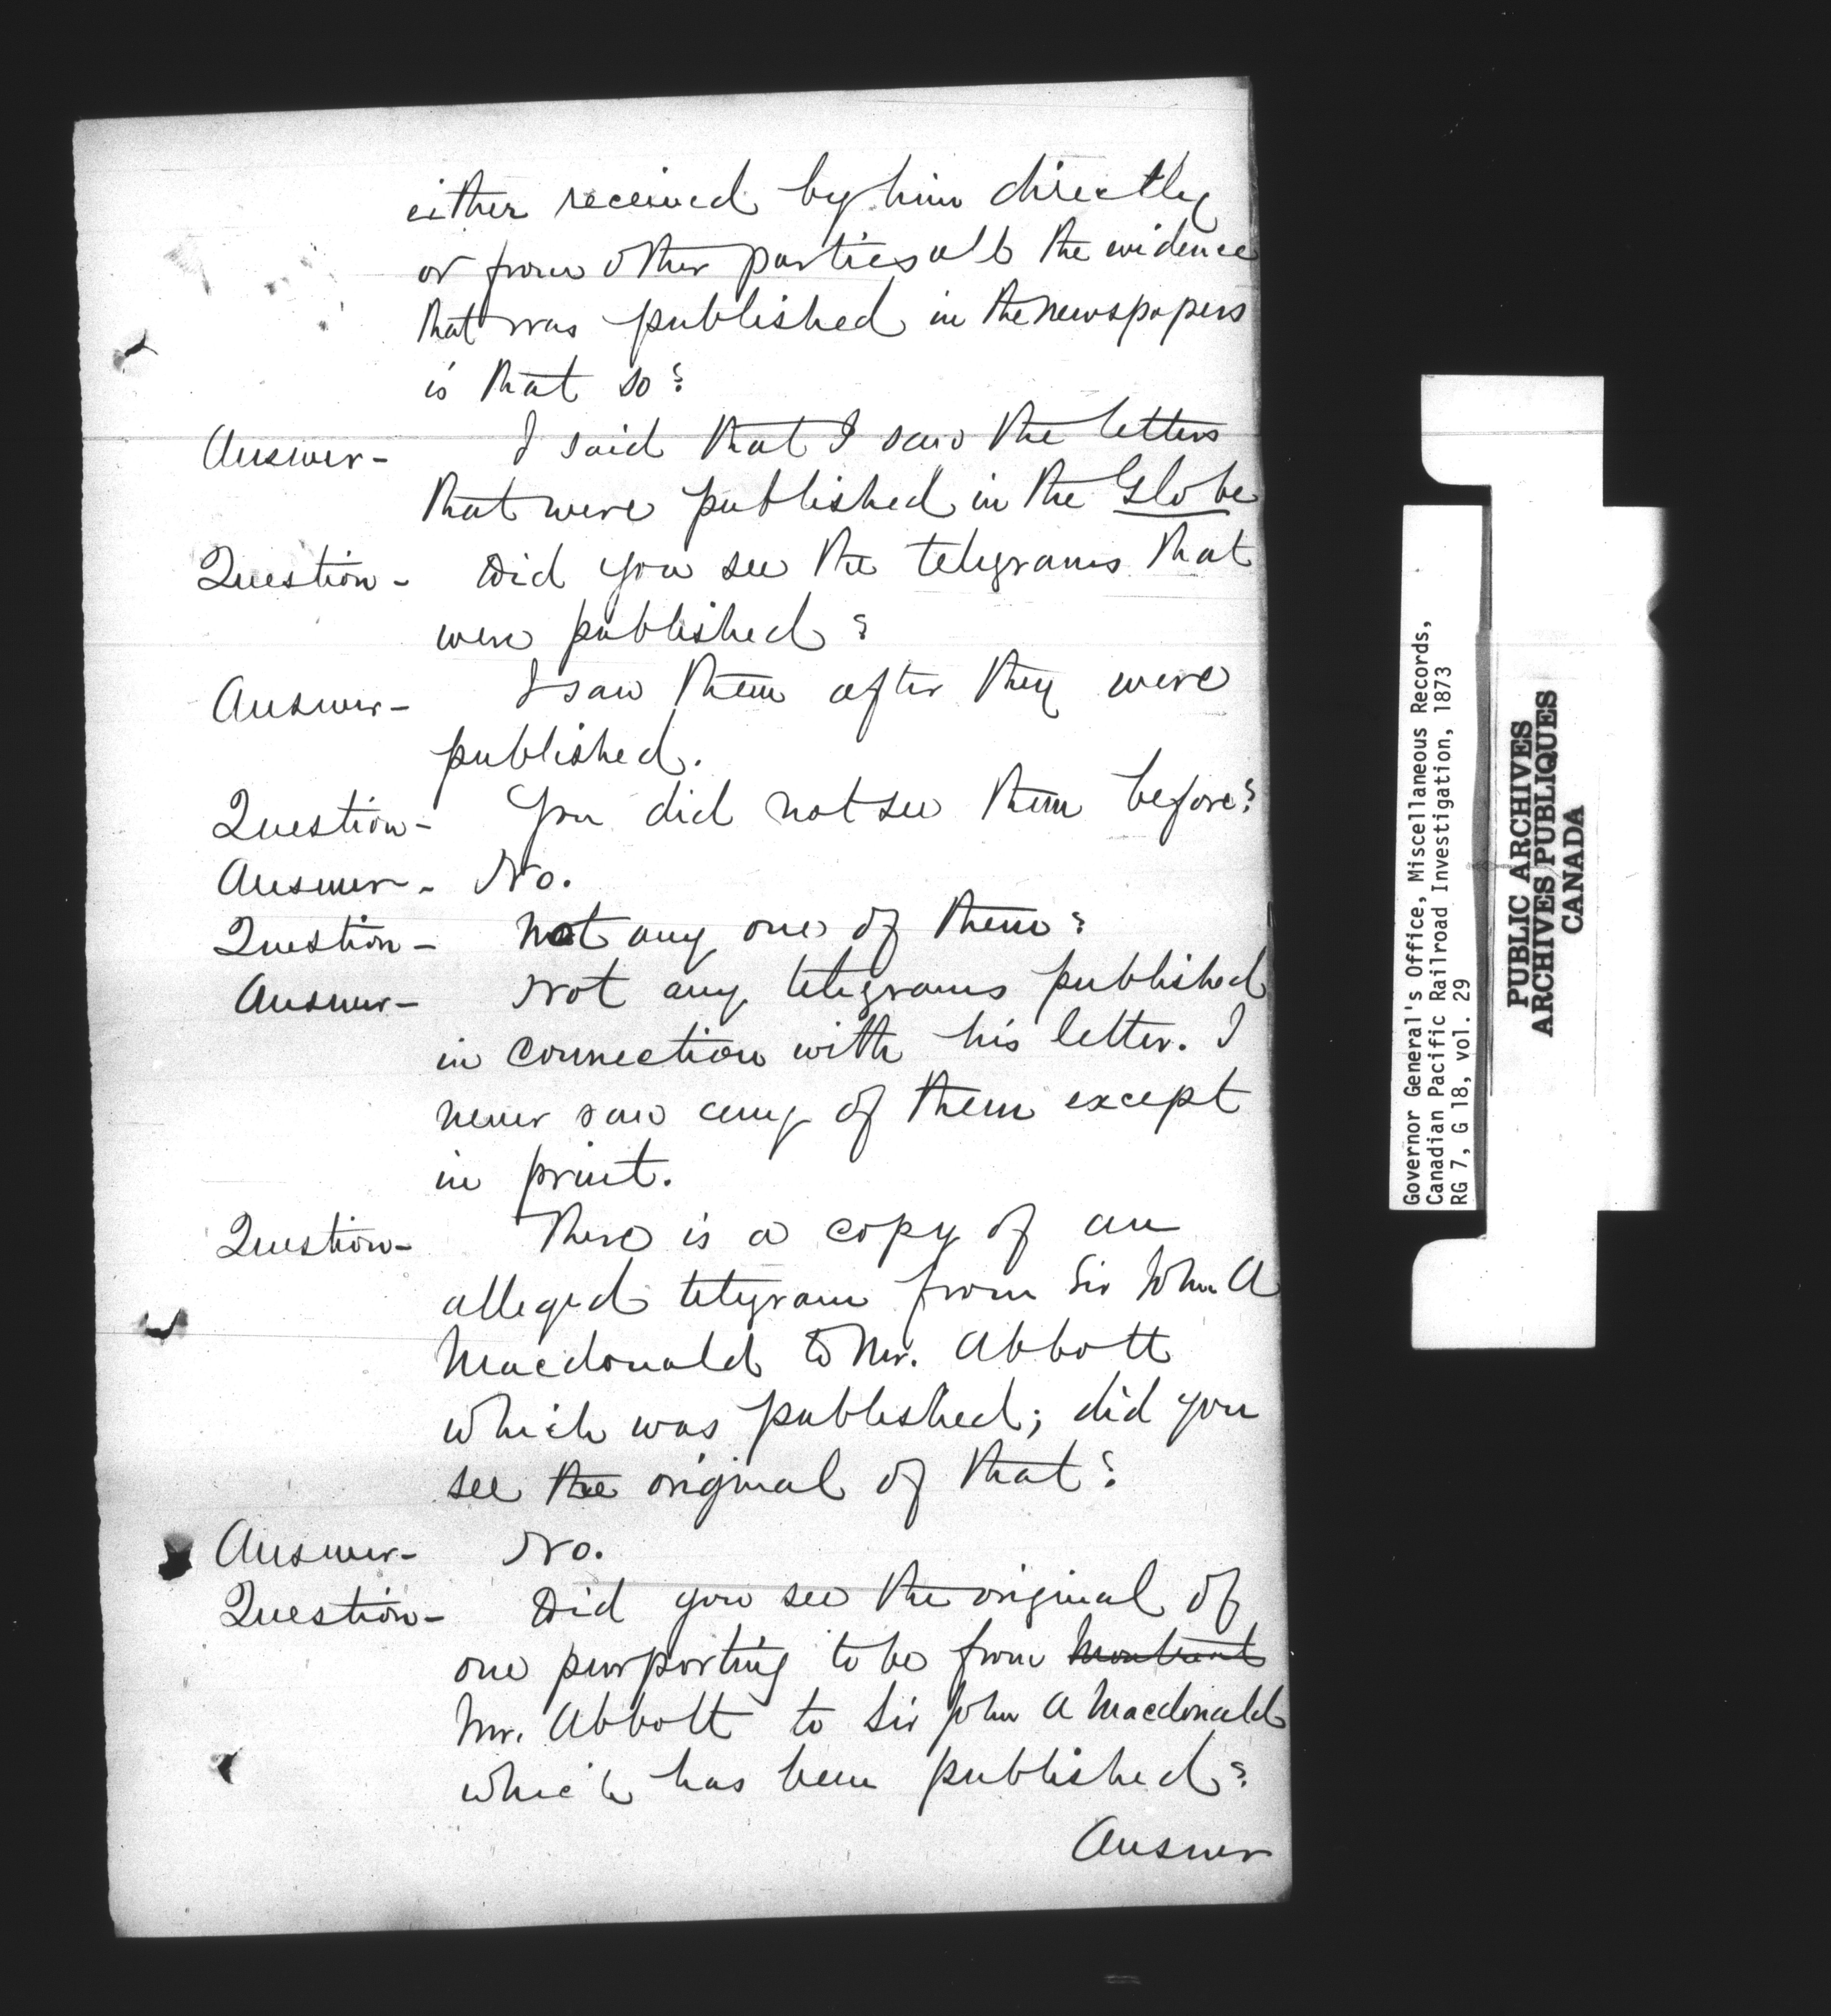 either received by him directly
or from other parties all the evidence
that was published in the newspapers
is that so?
Answer- I said that I saw the letters
that were published in the Globe
Question- Did you see the telegrams that
were published?
Answer- I saw them after they were
published.
Question- You did not see them before?
Answer- No.
Question- Not any one of them?
Answer- Not any telegrams published
in connection with his letter. I
never saw any of them except
in print.
Question- There is a copy of an
alleged telegram from Sir John A
Macdonald to Mr. Abbott
which was published; did you
see the original of that?
Answer- No.
Question- Did you see the original of
one purporting to be from
Mr. Abbott to Sir John A Macdonald
which has been published?
Answer
Governor General's Office, Miscellaneous Records,
Canadian Pacific Railroad Investigation, 1873
RG 7, G 18, vol. 29
PUBLIC ARCHIVES
ARCHIVES PUBLIQUES
CANADA